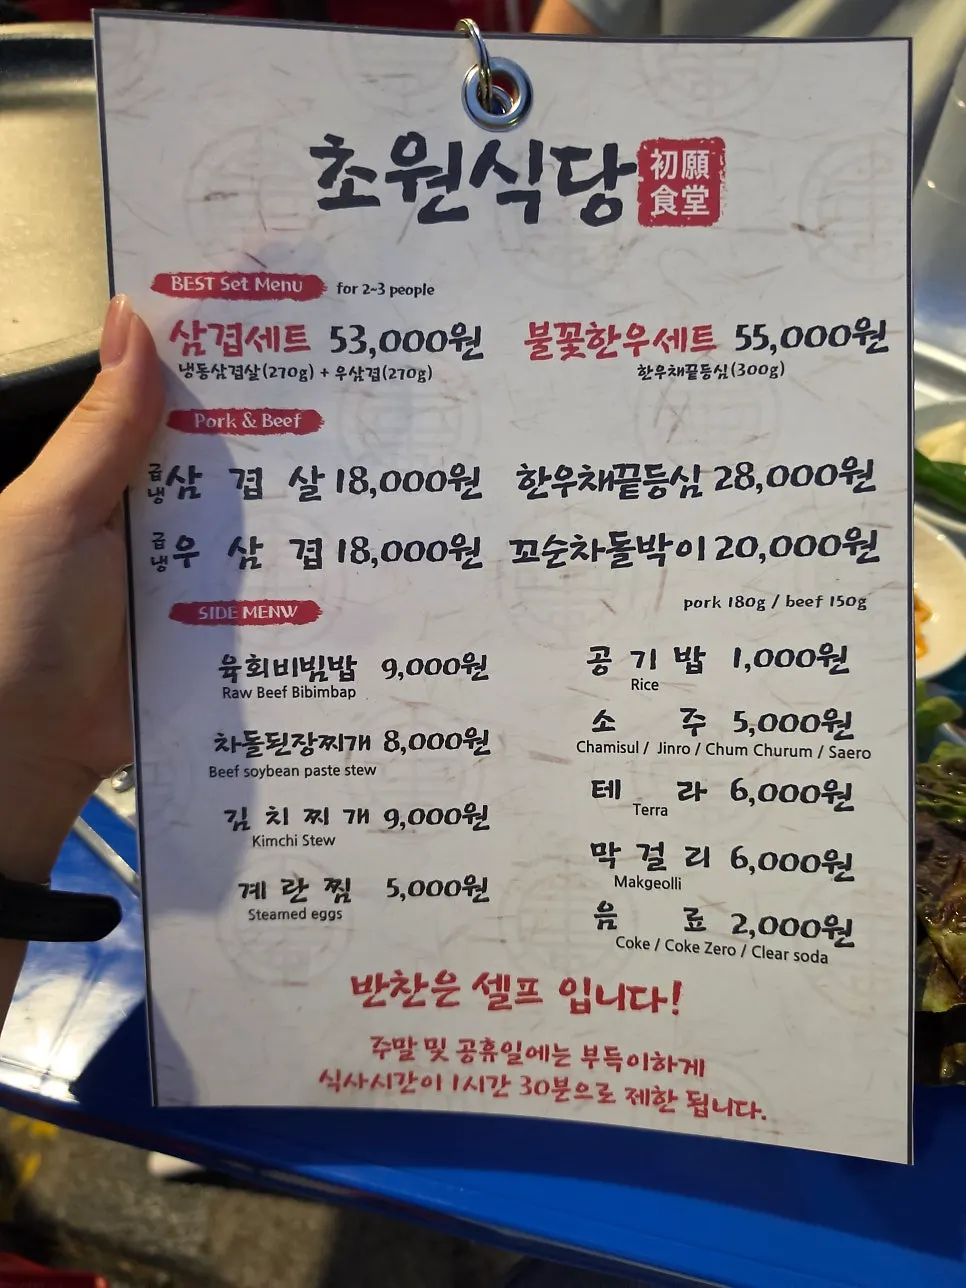 초원식당 初願食堂
BEST Set Menu for 2~3 people
삼겹세트 53,000원
냉동삼겹살(270g) + 우삼겹(270g)
불꽃한우세트 55,000원
한우채끝등심(300g)
Pork & Beef
급냉 삼겹살 18,000원
한우채끝등심 28,000원
급냉 우삼겹 18,000원
꼬순차돌박이 20,000원
pork 180g / beef 150g
SIDE MENW
육회비빔밥 9,000원
Raw Beef Bibimbap
차돌된장찌개 8,000원
Beef soybean paste stew
김치찌개 9,000원
Kimchi Stew
계란찜 5,000원
Steamed eggs
공기밥 1,000원
Rice
소주 5,000원
Chamisul / Jinro / Chum Churum / Saero
테라 6,000원
Terra
막걸리 6,000원
Makgeolli
음료 2,000원
Coke / Coke Zero / Clear soda
반찬은 셀프 입니다!
주말 및 공휴일에는 부득이하게
식사시간이 1시간 30분으로 제한 됩니다.